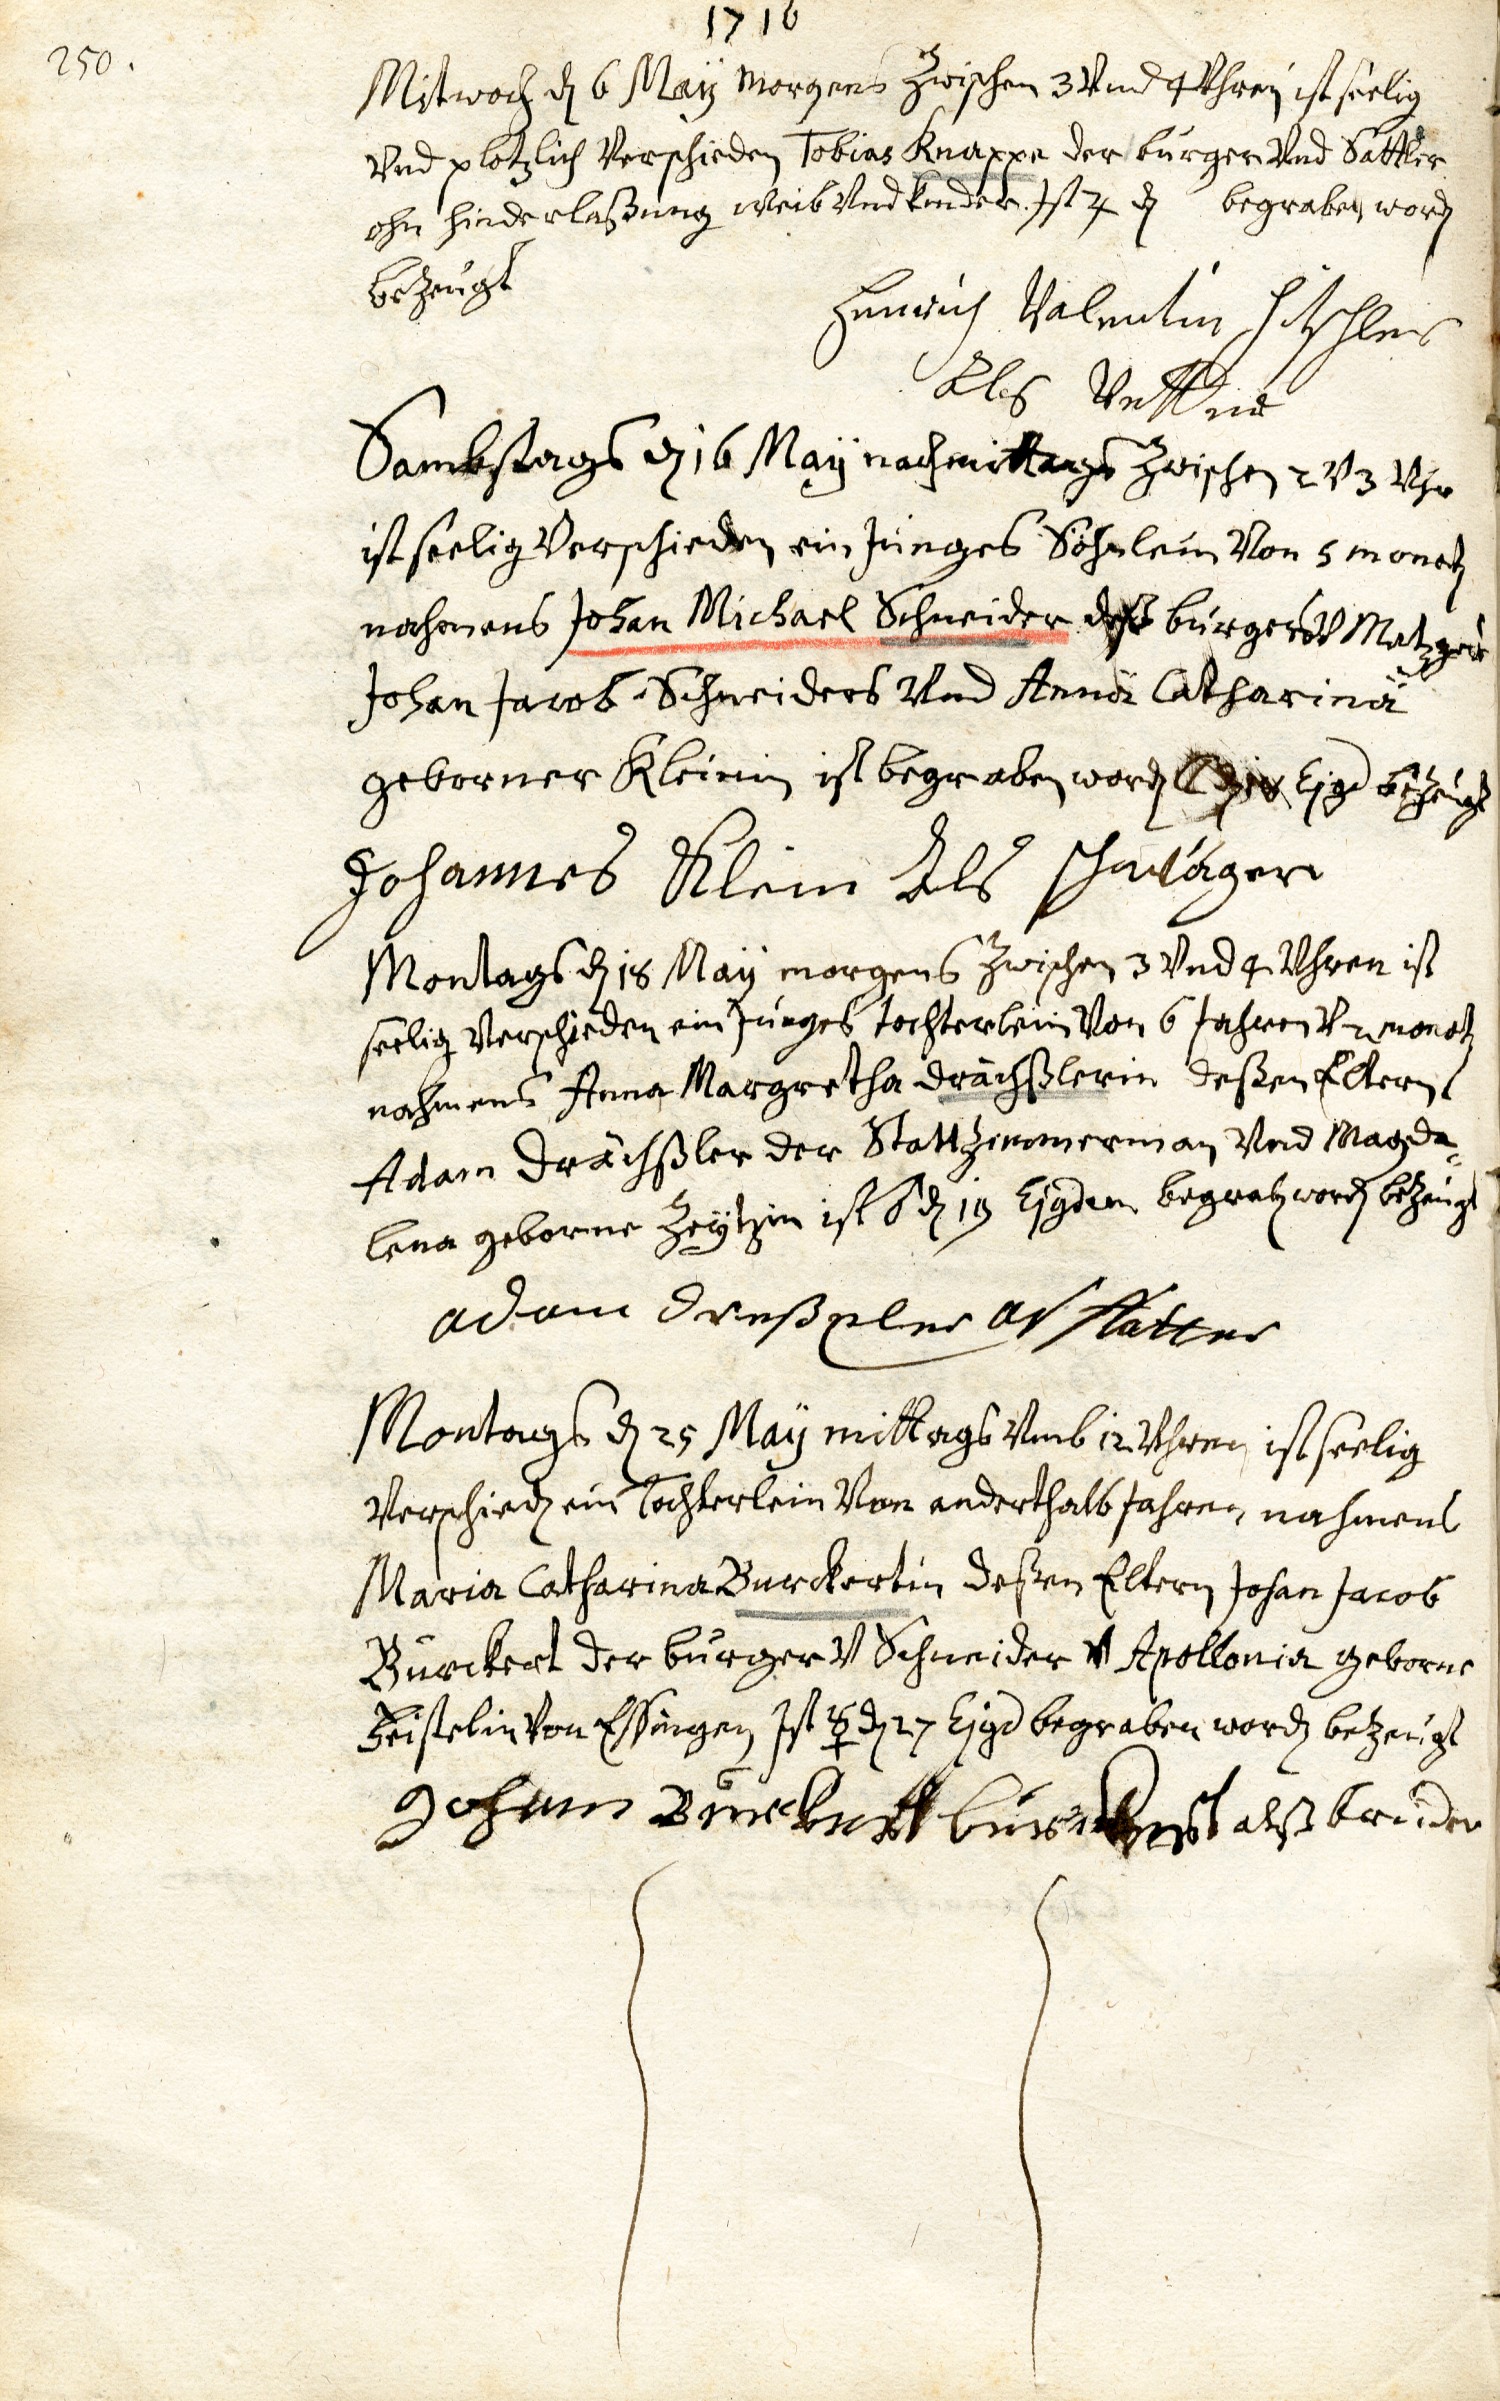 1716
250.
Mitwoch d 6 Maÿ Morgens Zwischen 3 Vnd 4 Vhren ist seelig
Vnd plotzlich Verschieden Tobias Knappe der burger Vnd Sattler
ohn hinderlaßung weib Vnd kinder. Ist ♃ d begraben word
bezeugt
Henrich Valentin Hitschler
Als Vetter
Sambstags d 16 Maÿ nachmittags Zwischen 2 V 3 Vhr
ist seelig Verschieden ein Junges Söhnlein Von 5 monat
nahmens Johan Michael Schneider deß burgers V Metzgers
Johan Jacob Schneiders Vnd Annä Catharinä
geborner Kleinin ist begraben word Ejgd bezeugt
Johannes Klein Als schwager
Montags d 18 Maÿ morgens Zwischen 3 Vnd 4 Vhren ist
seelig Verschieden ein Junges tochterlein Von 6 Jahren V 2 monat
nahmens Anna Margretha Drächßlerin deßen Eltern
Adam Drächßler der Statt Zimmerman Vnd Magda=
lena geborne Zeÿtzin ist ♂ d 19 Ejgdem begrab word bezeugt
adam Dreßler als Vatter
Montags d 25 Maÿ mittags Vmb 12 Vhren ist seelig
Verschied ein Tochterlein Von anderthalb Jahren nahmens
Maria Catharina Burckertin deßen Eltern Johan Jacob
Burckert der burger V Schneider V Apollonia geborne
Feistelin Von Essingen Ist ☿ d 27 Ejgd begraben word bezeugt
Johann Burckert als bruder